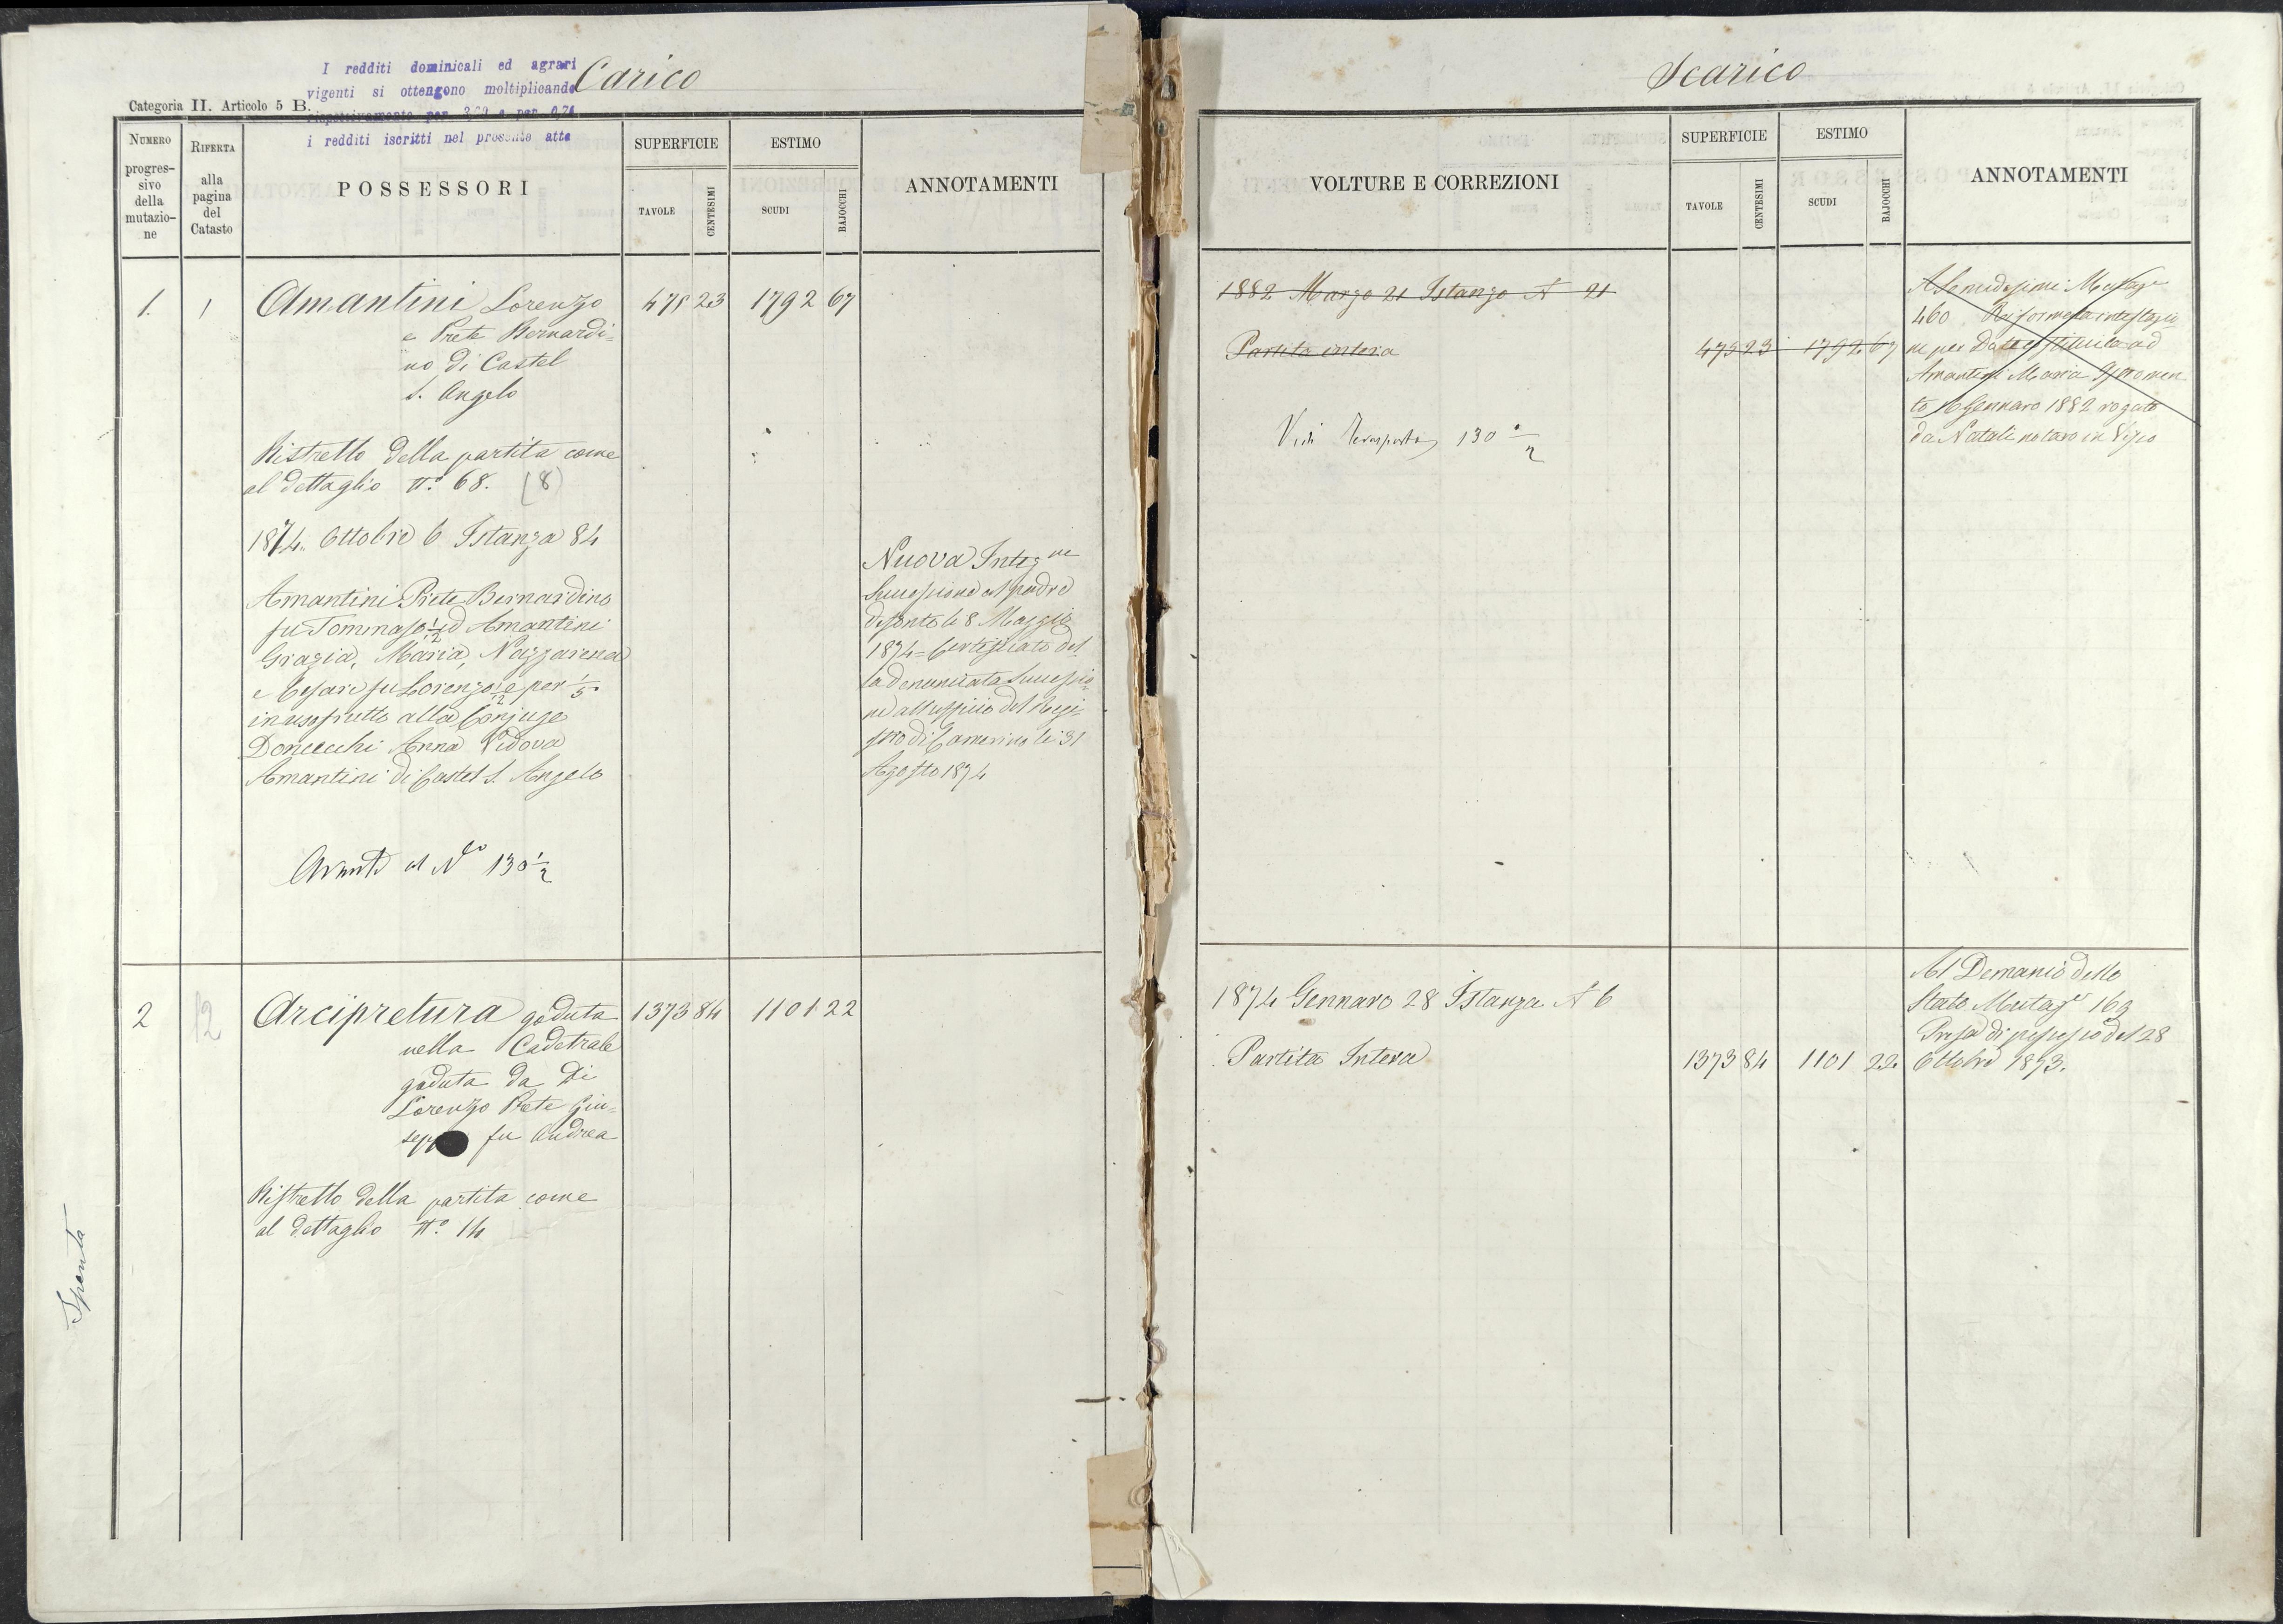 I redditi dominicali ed agrari
vigenti si ottengono moltiplicando
rispettivamente per e per 0,74
i redditi iscritti nel presente atto
Carico
Categoria II. Articolo 5 B.
NUMERO
progres-
sivo
della
mutazio-
ne
RIFERTA
alla
pagina
del
Catasto
POSSESSORI
SUPERFICIE
TAVOLE
CENTESIMI
ESTIMO
SCUDI
BAJOCCHI
ANNOTAMENTI
1. 1 Amantini Lorenzo 475 23 1792 67
e Prete Bernardi=
no di Castel
S. Angelo
Ristretto della partita come
al dettaglio N.º 68. (8)
1874. Ottobre 6 Istanza 84
Amantini Prete Bernardino
fu Tommaso 1/2 ed Amantini
Grazia, Maria, Nazzarena
e Cesare fu Lorenzo 1/2 e per 1/5
in usufrutto alla Conjuge
Donecchi Anna Vedova
Amantini di Castel S. Angelo
Nuova Integ.ne
Successione al padre
defonto li 8 Maggio
1874 = Certificato del
la denunciata Successio
ne all'ufficio del Regi=
stro di Camerino li 31
Agosto 1874
Avanti al N.º 130 1/2
2 2 Arcipretura goduta 1373 84 1101 22
nella Cadetrale
goduta da Di
Lorenzo Prete Giu=
sepp fu Andrea
Ristretto della partita come
al dettaglio N.º 14
Spenta
Scarico
VOLTURE E CORREZIONI
SUPERFICIE
TAVOLE
CENTESIMI
ESTIMO
SCUDI
BAJOCCHI
ANNOTAMENTI
1882 Marzo 21 Istanza N 21
Partita intera 475 23 1792 67
Vedi Trasporto 130 1/2
460 Riforma
ne per Dote ad
Amantini Maria
to 16 Gennaro 1882 rogato
da Natali notaro in Visso
1874 Gennaro 28 Istanza N 6
Partita Intera 1373 84 1101 22
Al Demanio dello
Stato Mutaz.e 163
Presa di possesso del 28
Ottobre 1873.